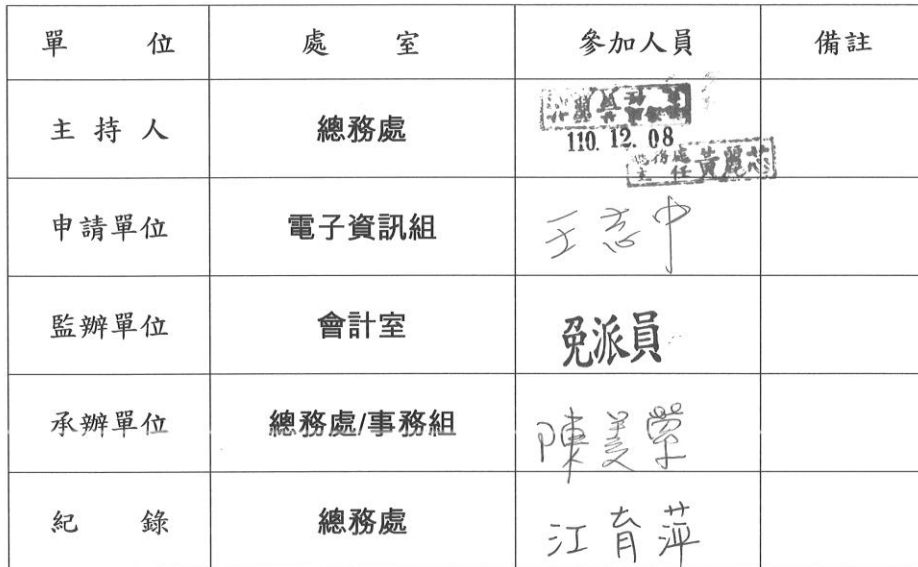 單 位 處 室 參加人員 備註
主 持 人 總務處
110. 12. 08
總務處
主 任 黃麗芯
申請單位 電子資訊組 王志中
監辦單位 會計室 免派員
承辦單位 總務處/事務組 陳美
紀 錄 總務處 江育萍